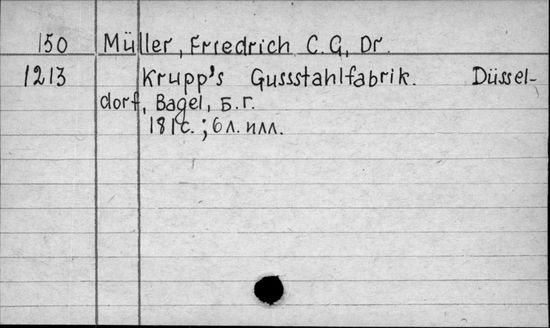 150 Müller, Friedrich C.G, Dr.
1213 Krupp's Gussstahlfabrik. Düssel-
dorf, Bagel, Б.г.
181с.; 6л. илл.